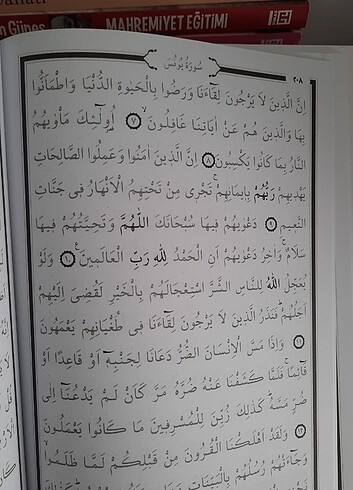 MAHREMİYET EĞİTİMİ
سُورَةُ يُونُسَ
٢٠٨
اِنَّ الَّذ۪ينَ لَا يَرْجُونَ لِقَٓاءَنَا وَرَضُوا بِالْحَيٰوةِ الدُّنْيَا وَاطْمَاَنُّوا
بِهَا وَالَّذ۪ينَ هُمْ عَنْ اٰيَاتِنَا غَافِلُونَۙ ﴿٧﴾ اُو۬لٰٓئِكَ مَأْوٰيهُمُ
النَّارُ بِمَا كَانُوا يَكْسِبُونَ ﴿٨﴾ اِنَّ الَّذ۪ينَ اٰمَنُوا وَعَمِلُوا الصَّالِحَاتِ
يَهْد۪يهِمْ رَبُّهُمْ بِا۪يمَانِهِمْۚ تَجْر۪ي مِنْ تَحْتِهِمُ الْاَنْهَارُ ف۪ي جَنَّاتِ
النَّع۪يمِ ﴿٩﴾ دَعْوٰيهُمْ ف۪يهَا سُبْحَانَكَ اللّٰهُمَّ وَتَحِيَّتُهُمْ ف۪يهَا
سَلَامٌۚ وَاٰخِرُ دَعْوٰيهُمْ اَنِ الْحَمْدُ لِلّٰهِ رَبِّ الْعَالَم۪ينَ۟ ﴿١٠﴾ وَلَوْ
يُعَجِّلُ اللّٰهُ لِلنَّاسِ الشَّرَّ اسْتِعْجَالَهُمْ بِالْخَيْرِ لَقُضِيَ اِلَيْهِمْ
اَجَلُهُمْۜ فَنَذَرُ الَّذ۪ينَ لَا يَرْجُونَ لِقَٓاءَنَا ف۪ي طُغْيَانِهِمْ يَعْمَهُونَ
﴿١١﴾ وَاِذَا مَسَّ الْاِنْسَانَ الضُّرُّ دَعَانَا لِجَنْبِه۪ٓ اَوْ قَاعِدًا اَوْ
قَٓائِمًاۚ فَلَمَّا كَشَفْنَا عَنْهُ ضُرَّهُ مَرَّ كَاَنْ لَمْ يَدْعُنَٓا اِلٰى
ضُرٍّ مَسَّهُۜ كَذٰلِكَ زُيِّنَ لِلْمُسْرِف۪ينَ مَا كَانُوا يَعْمَلُونَ
﴿١٢﴾ وَلَقَدْ اَهْلَكْنَا الْقُرُونَ مِنْ قَبْلِكُمْ لَمَّا ظَلَمُواۙ
وَجَٓاءَتْهُمْ رُسُلُهُمْ بِالْبَيِّنَاتِ